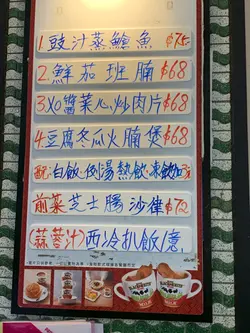 1.豉汁蒸鱠魚 $75
2.鮮茄班腩 $68
3.XO醬菜心炒肉片 $68
4.豆腐冬瓜火腩煲 $68
配:白飯.例湯熱飲.凍飲加3元
前菜芝士腸沙律 $72
(蒜蓉汁)西冷扒飯/意